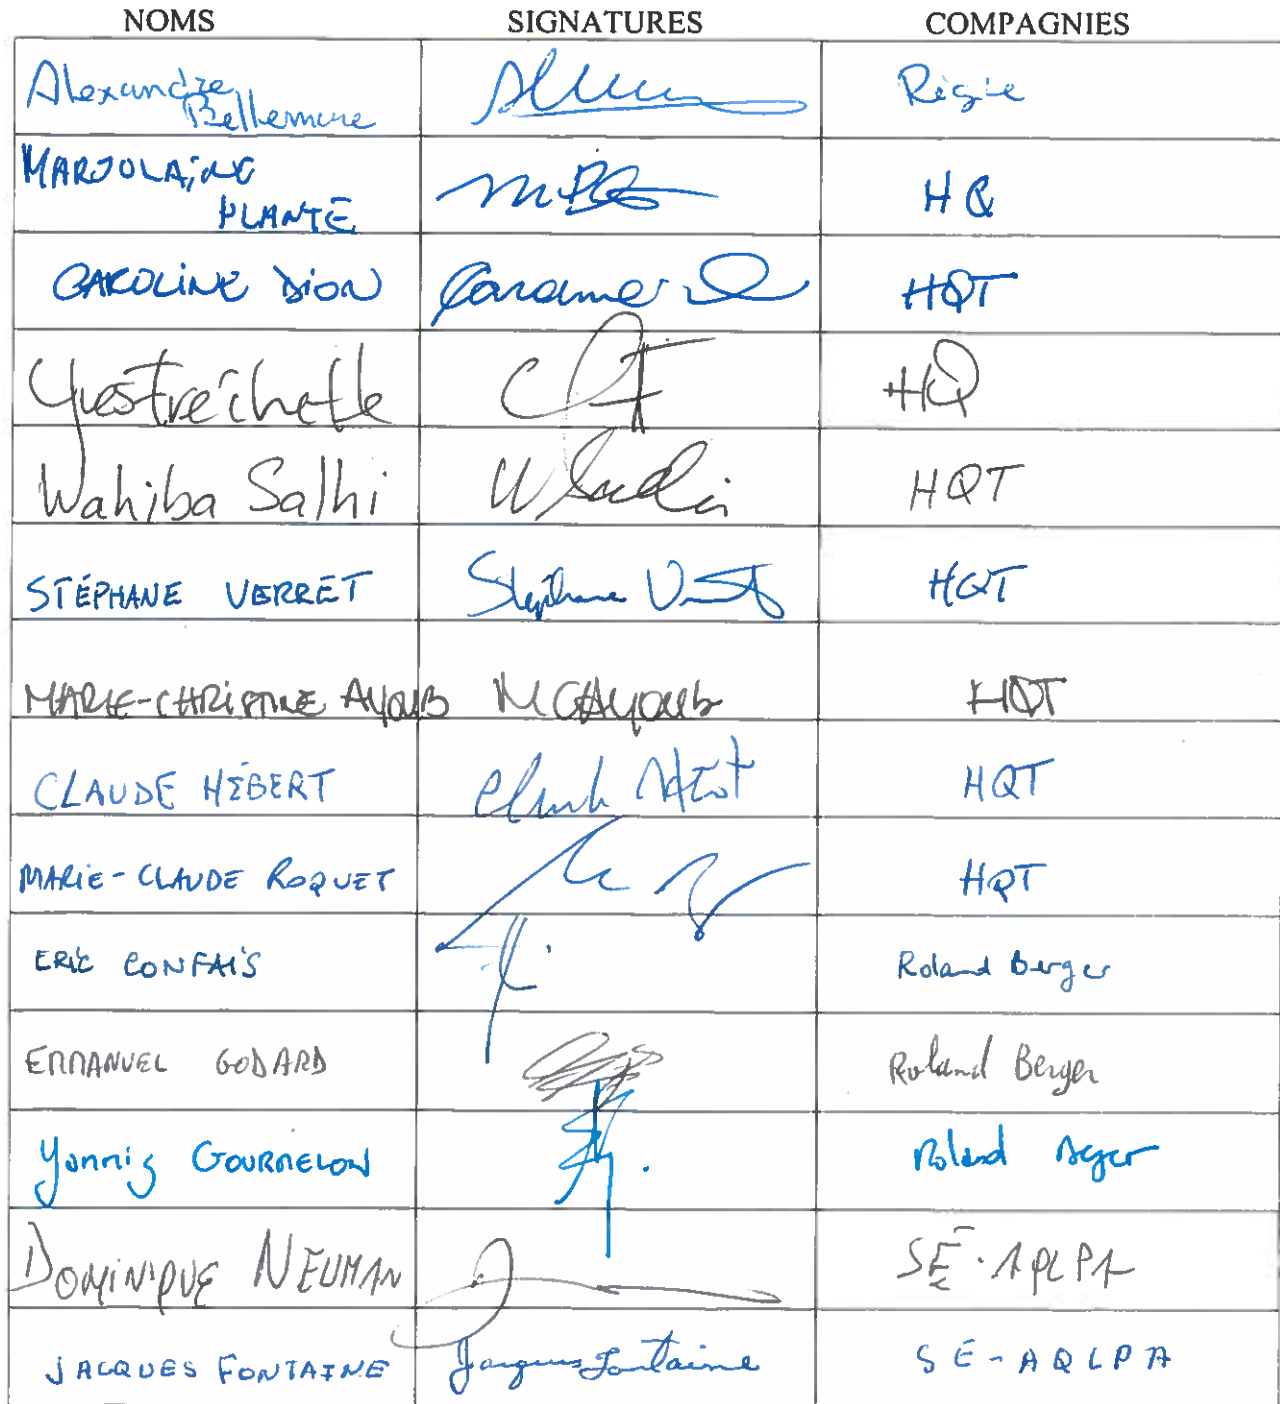 NOMS SIGNATURES COMPAGNIES
Alexandre Régie
Bellemare
MARJOLAINE HQ
PLANTE
CAROLINE DION HQT
Yves Fréchette HQ
Wahiba Salhi HQT
STÉPHANE VERRET Stéphane HQT
MARIE-CHRISTINE AYOUB MCAyoub HQT
CLAUDE HÉBERT HQT
MARIE-CLAUDE ROQUET HQT
ERIC CONFAIS Roland Berger
EMMANUEL GODARD Roland Berger
Yannig GOURMELON Roland Berger
DOMINIQUE NEUMAN SÉ-AQLPA
JACQUES FONTAINE Jacques Fontaine SÉ-AQLPA